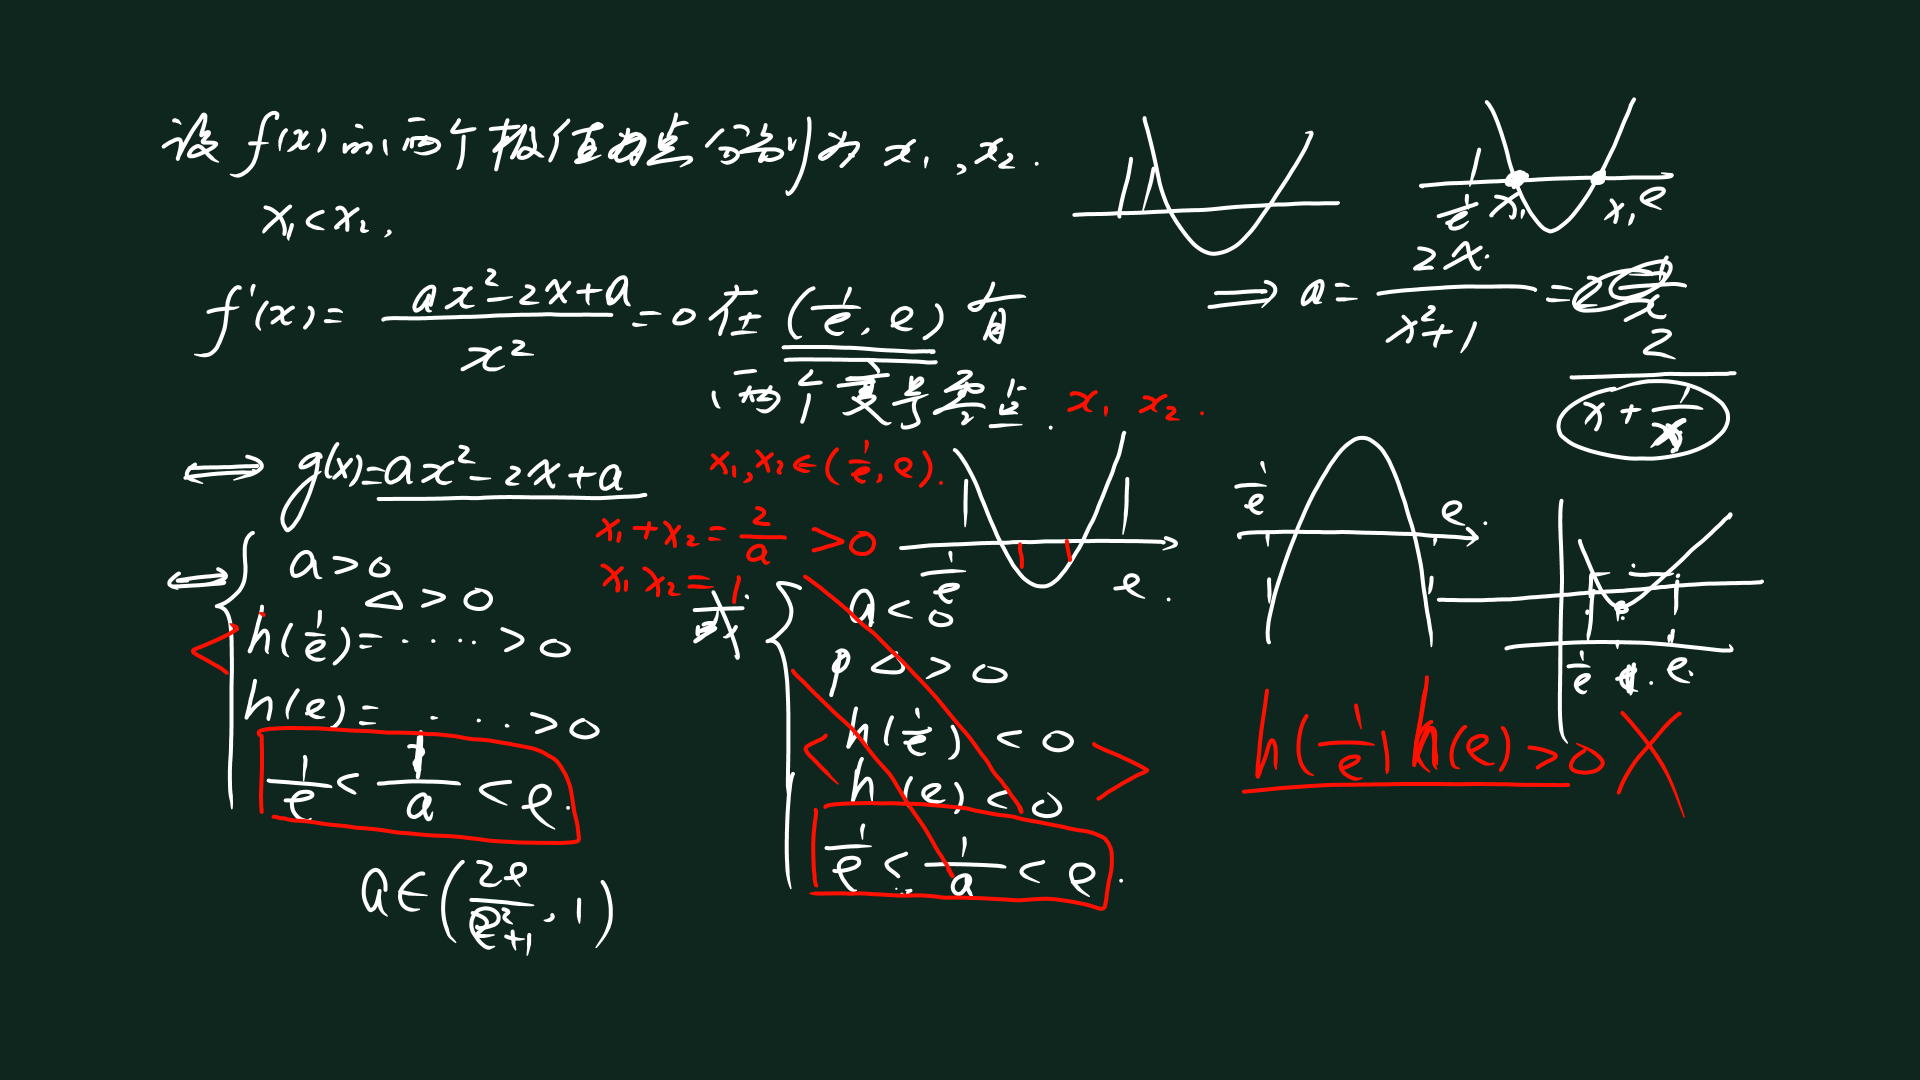 设 f(x) 的两个极值点分别为 x₁, x₂.
x₁ < x₂,
f'(x) = (ax² - 2x + a)/x² = 0 在 (1/e, e) 有
两个变号零点. x₁ x₂.
⟺ g(x) = ax² - 2x + a
x₁, x₂ ∈ (1/e, e).
x₁ + x₂ = 2/a > 0
x₁ x₂ = 1
⟺ { a > 0
Δ > 0
h(1/e) = ····· > 0
h(e) = ···· > 0
1/e < 1/a < e.
a ∈ (2e/(e²+1), 1)
{ a < 0
Δ > 0
h(1/e) < 0
h(e) < 0
1/e < 1/a < e.
1/e x₁ x₁ e
⟹ a = 2x/(x²+1) =
2/(x + 1/x)
1/e e.
1/e e.
1/e e.
h(1/e) h(e) > 0 ×